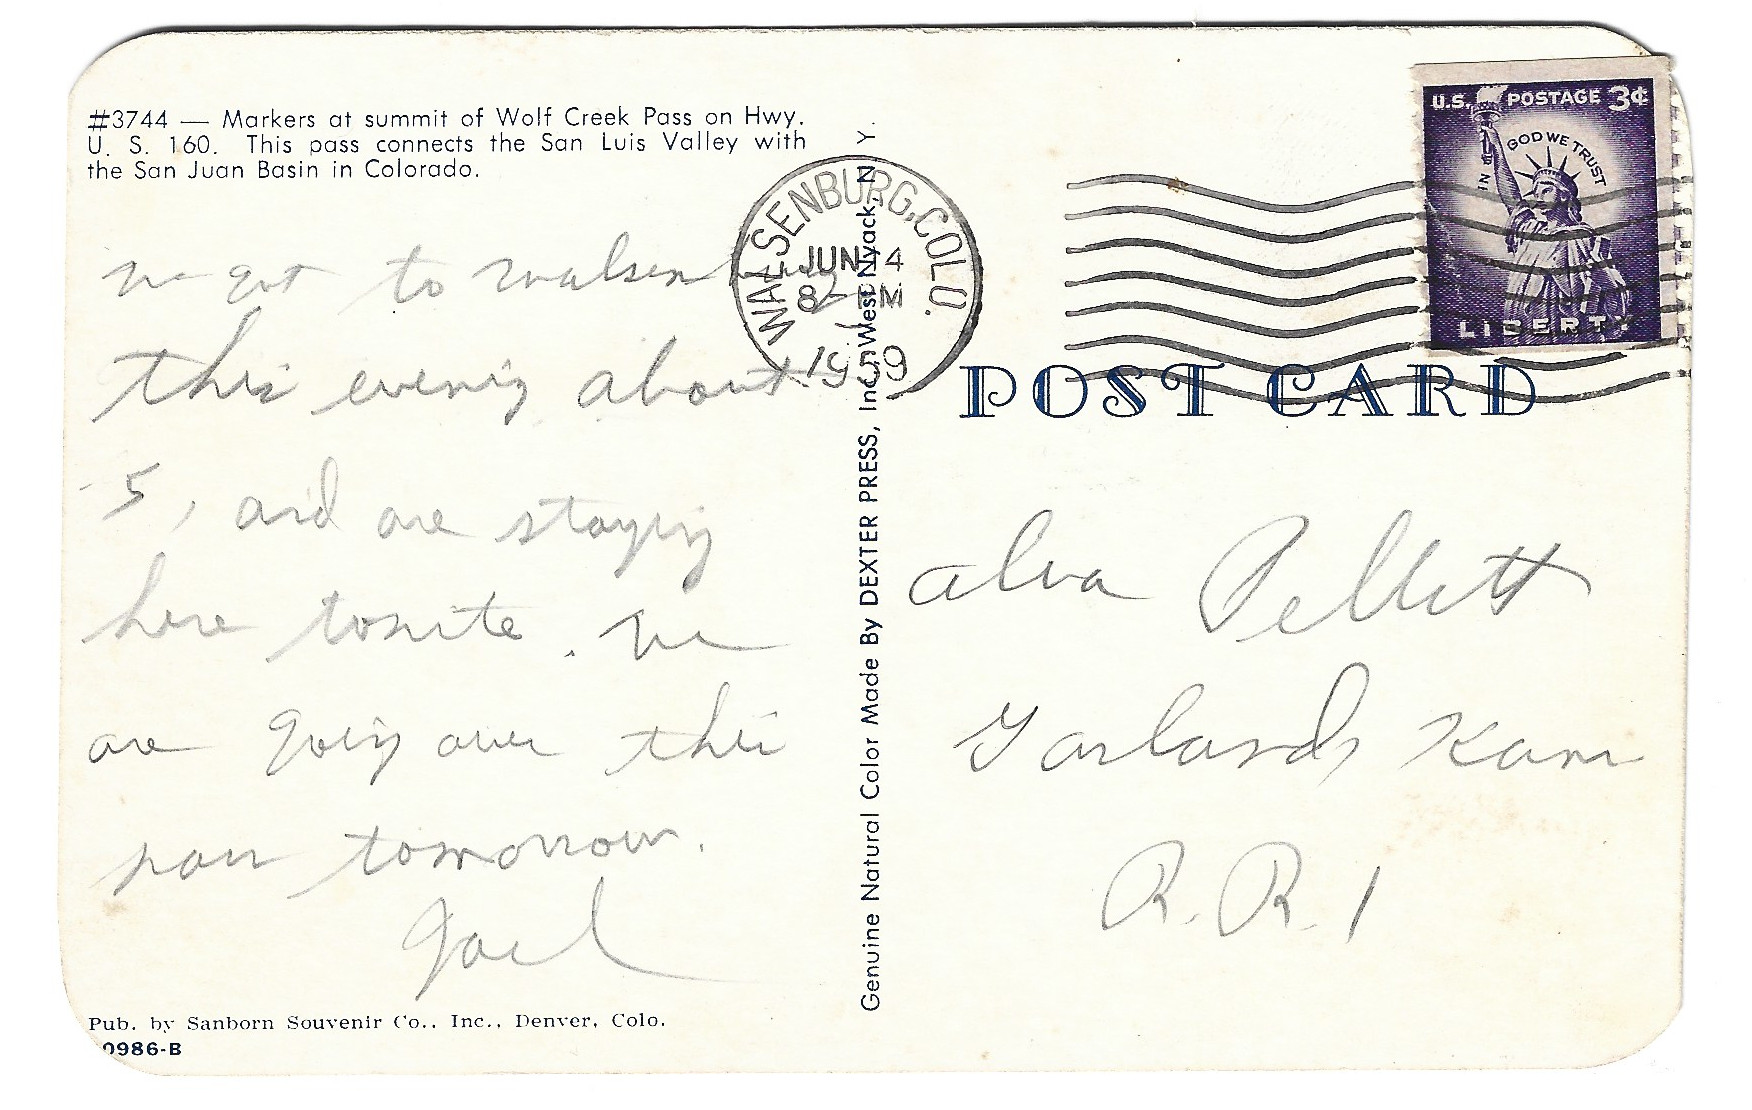 #3744 — Markers at summit of Wolf Creek Pass on Hwy.
U. S. 160. This pass connects the San Luis Valley with
the San Juan Basin in Colorado.
We got to Walsen
this evening about
5, and are staying
here tonite. We
are going over this
pass tomorrow.
Gail
Pub. by Sanborn Souvenir Co., Inc., Denver, Colo.
0986-B
Genuine Natural Color Made By DEXTER PRESS, Inc., West Nyack, N. Y.
WALSENBURG, COLO.
JUN 4
8 PM
1959
U.S. POSTAGE 3¢
IN GOD WE TRUST
LIBERTY
POST CARD
Alva Pellett
Garland Kans
R. R. 1